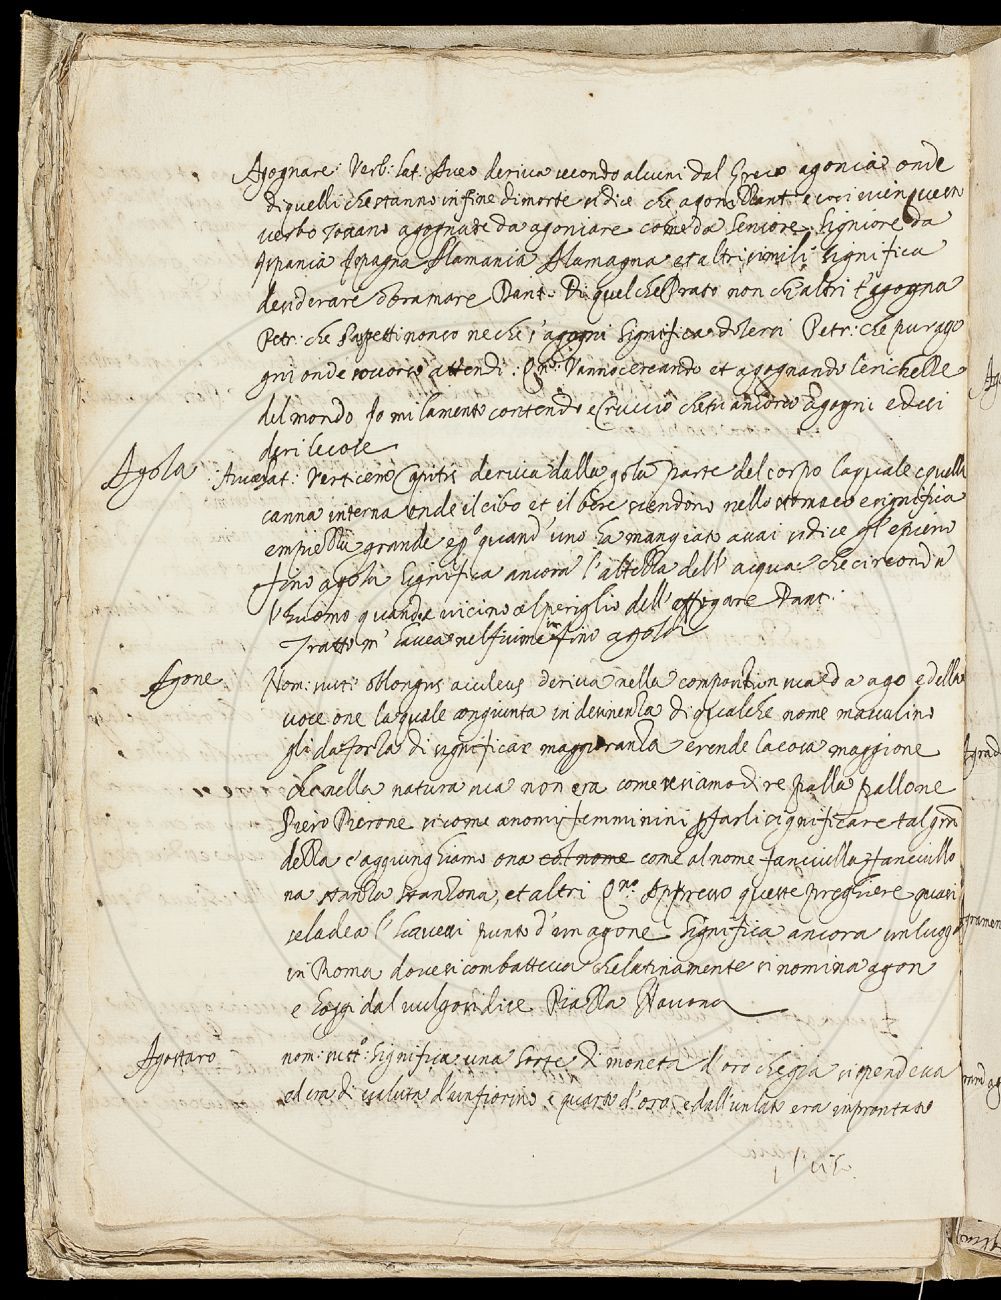 Agognare: Verb: Lat: Aveo deriva secondo alcuni dal Greco agonia onde
di quelli che stanno in fine di morte si dice che agonizzant e cosi
verbo Toscano agognare da agoniare come da Seniore Signiore da
Ispania Ispagna Alamania Alamagna et altri simili significa
desiderare o bramare Dant: Di quel che Prato non ch'altri t'agogna
Petr: che s'aspetti non so ne che s'agogni significa dolersi Petr: che pur ago
gni onde soccorso attendi: Vanno cercando et agognando le richezze
del mondo Io mi lamento contendo e cruccio che tu ancora agogni e desi
deri le cose
Agola : Lat: Verticem Capitis deriva dalla gola parte del corpo la quale e quella
canna interna onde il cibo et il bere scendono nello stomaco e significa
grande quand'uno ha mangiato assai si dice gl'e pieno
fino agola significa ancora l'altezza dell'acqua che circonda
l'huomo quando e vicino al periglio dell'affogare Dant:
Tratto m'havea nel fiume in fino agola
Agone Nom: sust: oblongus aculeus deriva nella compositione sua da ago e della
voce one la quale congiunta in desinenza di qualche nome masculino
gli da forza di significar maggioranza e rende la cosa maggione
che nella natura sua non era come vesiamo dire palla pallone
Piero Pierone si come a nomi femminini p farli significare tal gran
dezza c'aggiunghiamo ona col nome come al nome fanciulla fanciullo
na stanza stanzona, et altri appresso queste preghiere quasi
se la dea l'havessi punto d'un agone significa ancora un luogo
in Roma dove si combatteva che latinamente si nomina agon
e hoggi dal vulgo si dice Piazza Navona
Agostaro nom: sustº: significa una sorte di moneta d'oro che gia si spendeva
ed era di valuta d'un fiorino e quarto d'oro, e dall'un lato era improntato